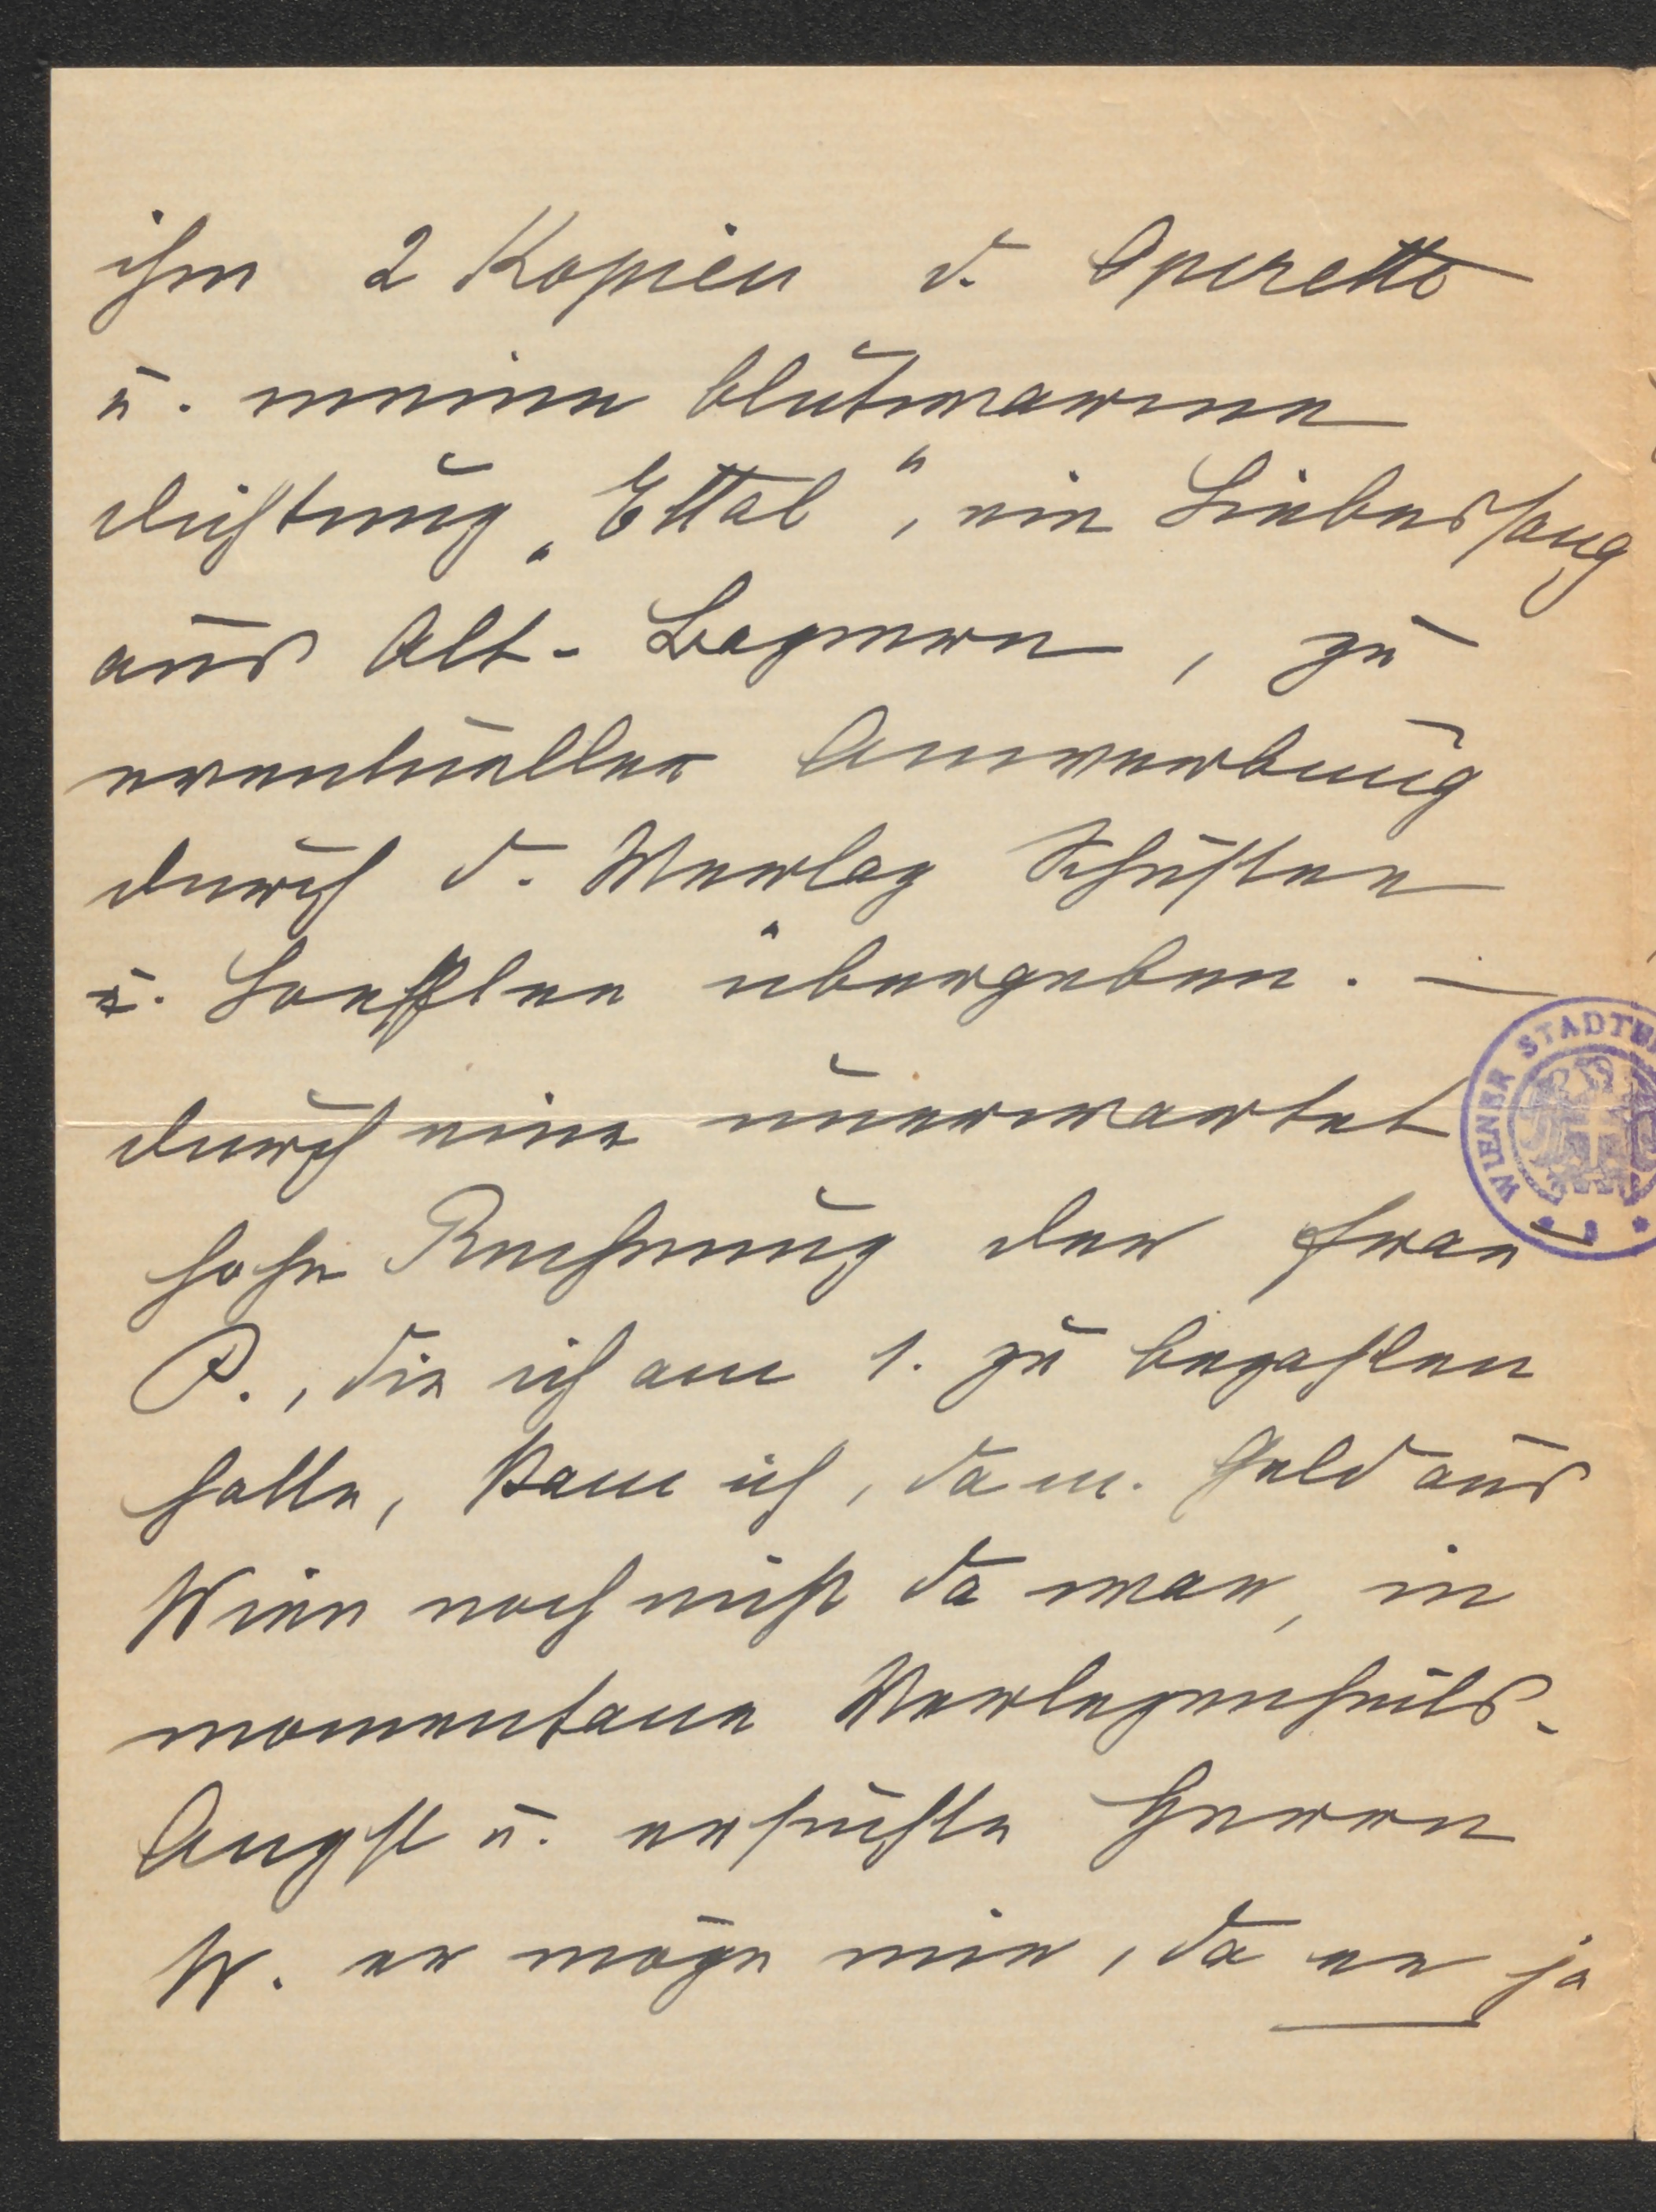 ihm 2 Kopien d. Operette
u. meine blutwarme
Dichtung „Ettal“, ein Liebessang
aus Alt-Bayern, zu
eventueller Anwerbung
durch d. Verlag Schuster
u. Loeffler übergeben. —
Durch eine unerwartet
hohe Rechnung der Frau
P., die ich am 1. zu bezahlen
hatte, kam ich, da m. Geld aus
Wien noch nicht da war, in
momentane Verlegenheits-
Angst u. ersuchte Herrn
W. er möge mir, da er ja
WIENER STADTB